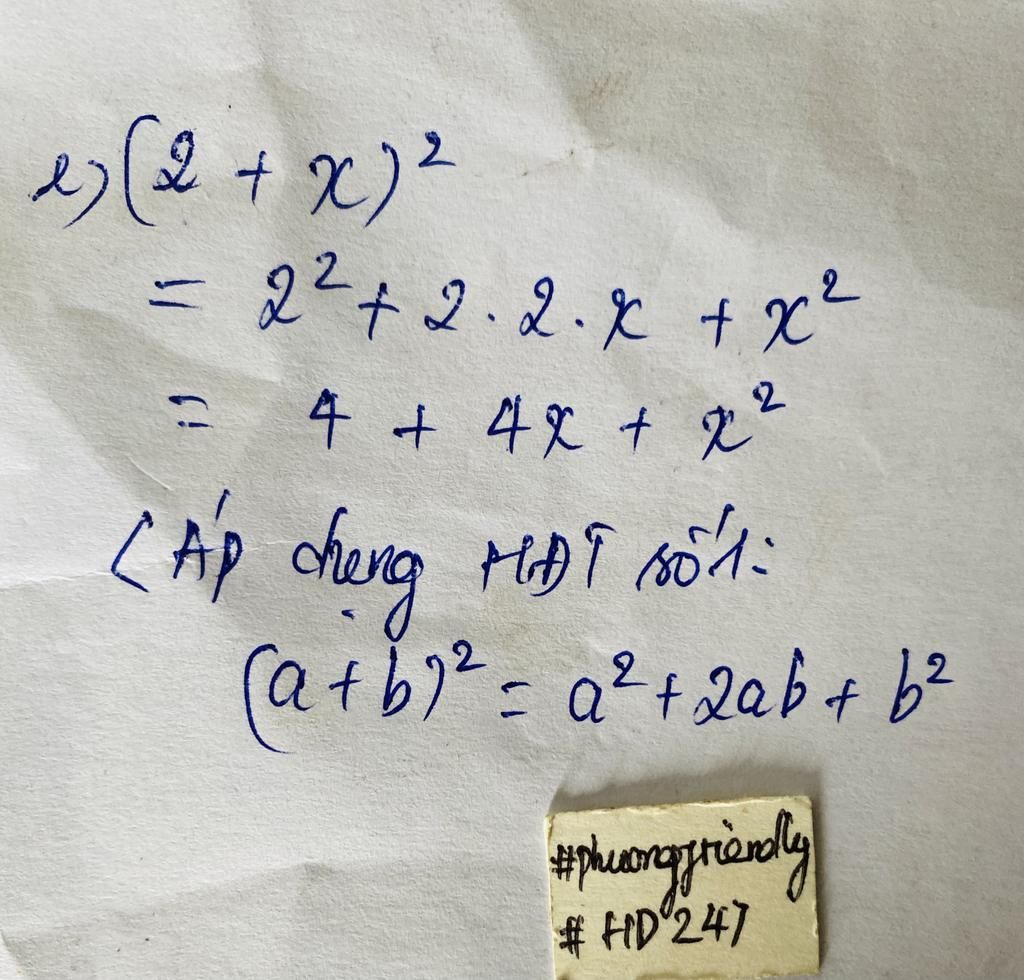 e) (2 + x)²
= 2² + 2 . 2 . x + x²
= 4 + 4x + x²
( Áp dụng HĐT số 1:
(a + b)² = a² + 2ab + b²
#phuongfriendly
# HD 247